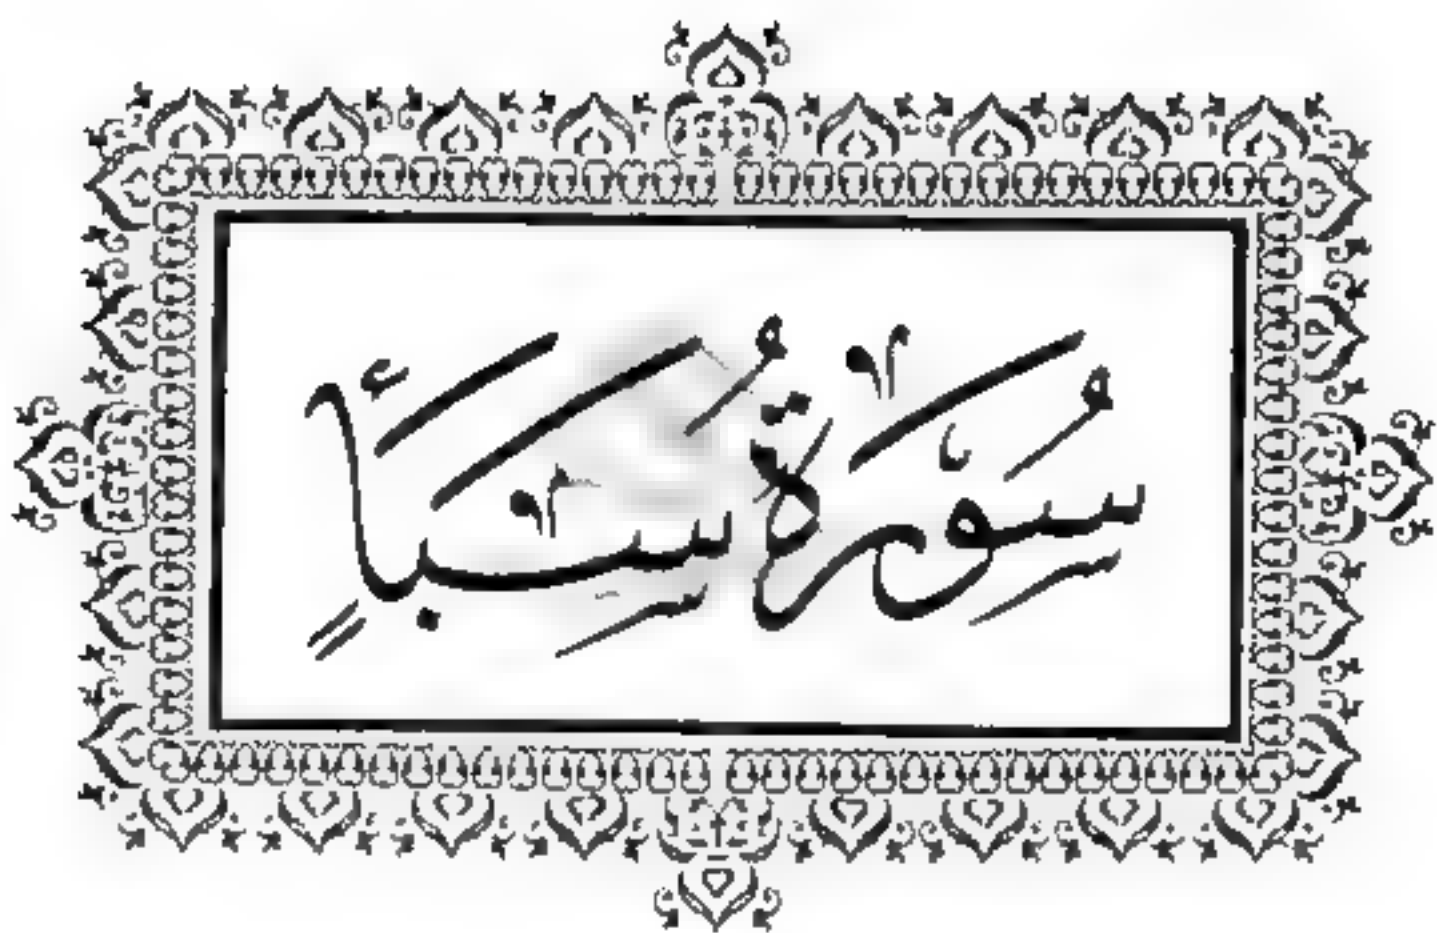 سُورَةُ سَبَأٍ